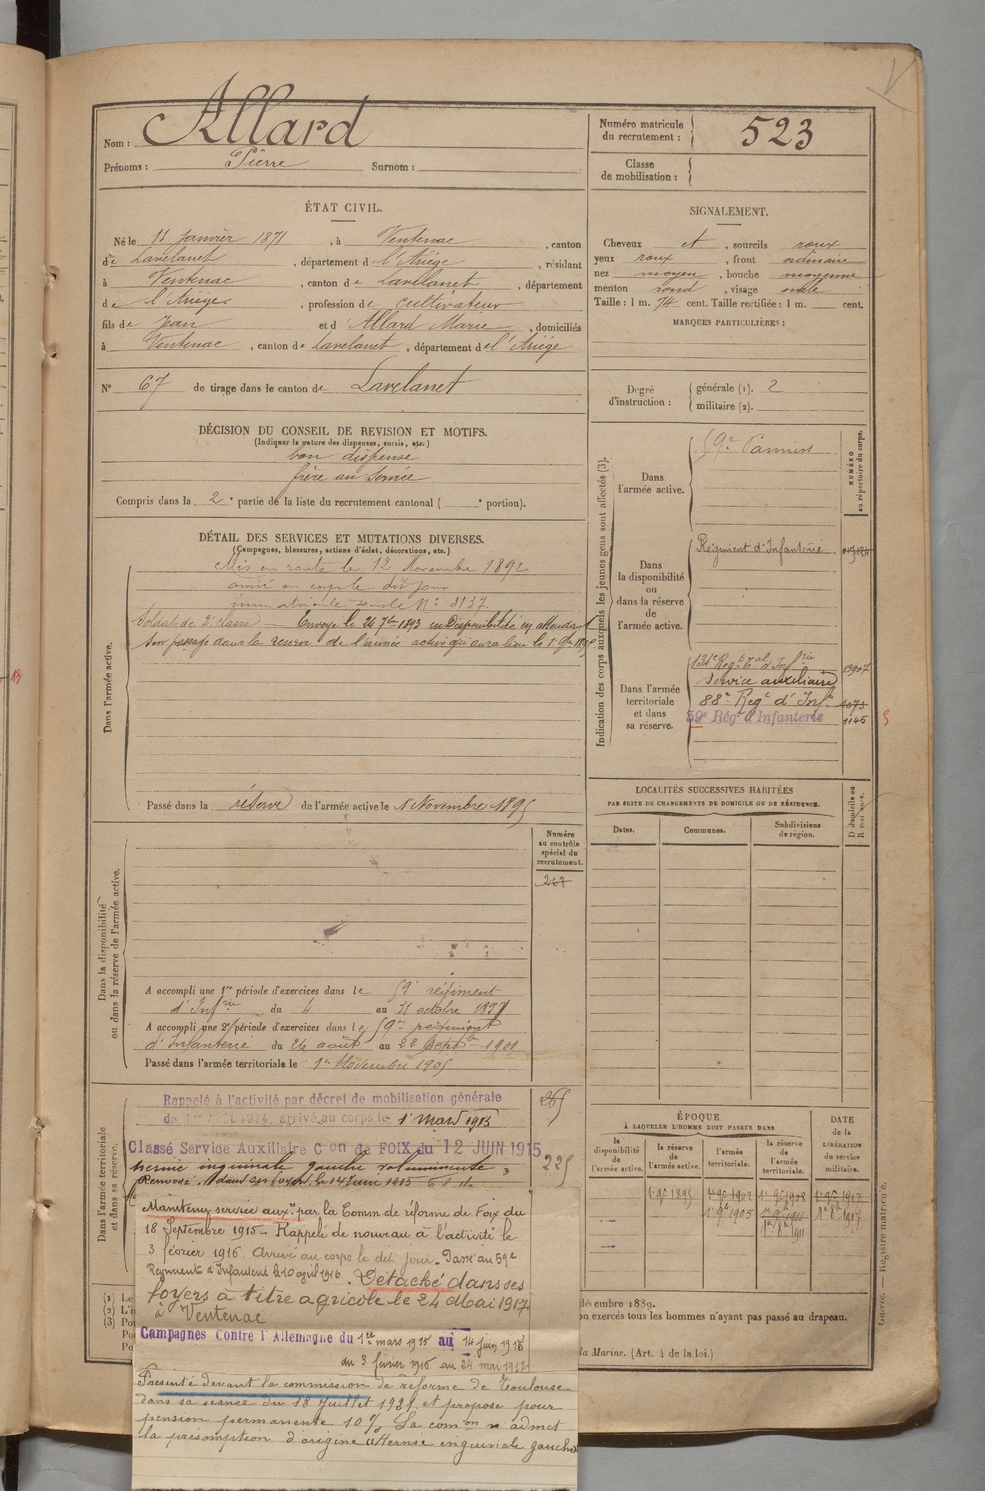 Nom : Allard
Prénoms : Pierre Surnom :
Numéro matricule du recrutement : 523
Classe de mobilisation :
ÉTAT CIVIL.
Né le 11 Janvier 1871, à Ventenac, canton
de Lavelanet, département de l'Ariège, résidant
à Ventenac, canton de Lavelanet, département
de l'Ariège, profession de cultivateur
fils de Jean et d Allard Marie, domiciliés
à Ventenac, canton de Lavelanet, département de l'Ariège
N° 67 de tirage dans le canton de Lavelanet
SIGNALEMENT.
Cheveux et, sourcils roux
yeux roux, front ordinaire
nez moyen, bouche moyenne
menton rond, visage ovale
Taille : 1 m. 74 cent. Taille rectifiée : 1 m. cent.
MARQUES PARTICULIÈRES :
Degré d'instruction : générale (1). 2
militaire (2).
DÉCISION DU CONSEIL DE REVISION ET MOTIFS.
(Indiquer la nature des dispenses, sursis, etc.)
bon dispensé
frère au service
Compris dans la 2e partie de la liste du recrutement cantonal ( e portion).
DÉTAIL DES SERVICES ET MUTATIONS DIVERSES.
(Campagnes, blessures, actions d'éclat, décorations, etc.)
Dans l'armée active.
Mis en route le 12 Novembre 1892
arrivé au corps le dit jour
immatriculé sous le N° 3137.
Soldat de 2e classe — Envoyé le 24 7bre 1893 en Disponibilité en attendant
son passage dans la réserve de l'armée active qui aura lieu le 1er 9bre 1895
Passé dans la réserve de l'armée active le 1 Novembre 1895
Indication des corps auxquels les jeunes gens sont affectés (3).
NUMÉRO au répertoire du corps.
Dans l'armée active.
59e Pamiers
Dans la disponibilité ou dans la réserve de l'armée active.
Régiment d'Infanterie
Dans l'armée territoriale et dans sa réserve.
Service auxiliaire
88e Régt d'Inf.
59e Régt d'Infanterie
LOCALITÉS SUCCESSIVES HABITÉES
PAR SUITE DE CHANGEMENTS DE DOMICILE OU DE RÉSIDENCE.
Dates. Communes. Subdivisions de région.
Dans la disponibilité ou dans la réserve de l'armée active.
Numéro au contrôle spécial du recrutement.
A accompli une 1re période d'exercices dans le 59e régiment
d'Infrie du 4 au 31 octobre
A accompli une 2e période d'exercices dans le 59e régiment
d'Infanterie du 26 août au 22 Septbre 1901
Passé dans l'armée territoriale le 1er Novembre 1905
Dans l'armée territoriale et dans sa réserve.
Rappelé à l'activité par décret de mobilisation générale
arrivé au corps le 1er Mars 1915
Classé Service Auxiliaire Con de FOIX du 12 JUIN 1915
hernie inguinale gauche volumineuse
Renvoyé dans ses foyers le 14 Juin 1915
225
Maintenu service auxre par la Comm de réforme de Foix du
18 Septembre 1915 - Rappelé de nouveau à l'activité le
3 février 1916. Arrivé au corps le dit jour. Passé au 59e
Régiment d'Infanterie le 10 avril 1916. Détaché dans ses
foyers à titre agricole le 24 Mai 1917
à Ventenac
Campagnes Contre l'Allemagne du 1er mars 1915 au 14 juin
du 3 février 1916 au 24 mai 1917
Présenté devant la commission de réforme de Toulouse
dans sa séance du 18 Juillet 1921 et proposé pour
pension permanente 10 %. La comon n admet
la présomption d'origine "Hernie inguinale gauche
ÉPOQUE
À LAQUELLE L'HOMME DOIT PASSER DANS
la disponibilité de l'armée active. la réserve de l'armée active. l'armée territoriale. la réserve de l'armée territoriale.
DATE de la LIBÉRATION du service militaire.
1er 9bre 1895
1er 9bre 1905
décembre 1889.
on exercés tous les hommes n'ayant pas passé au drapeau.
la Marine. (Art. 4 de la loi.)